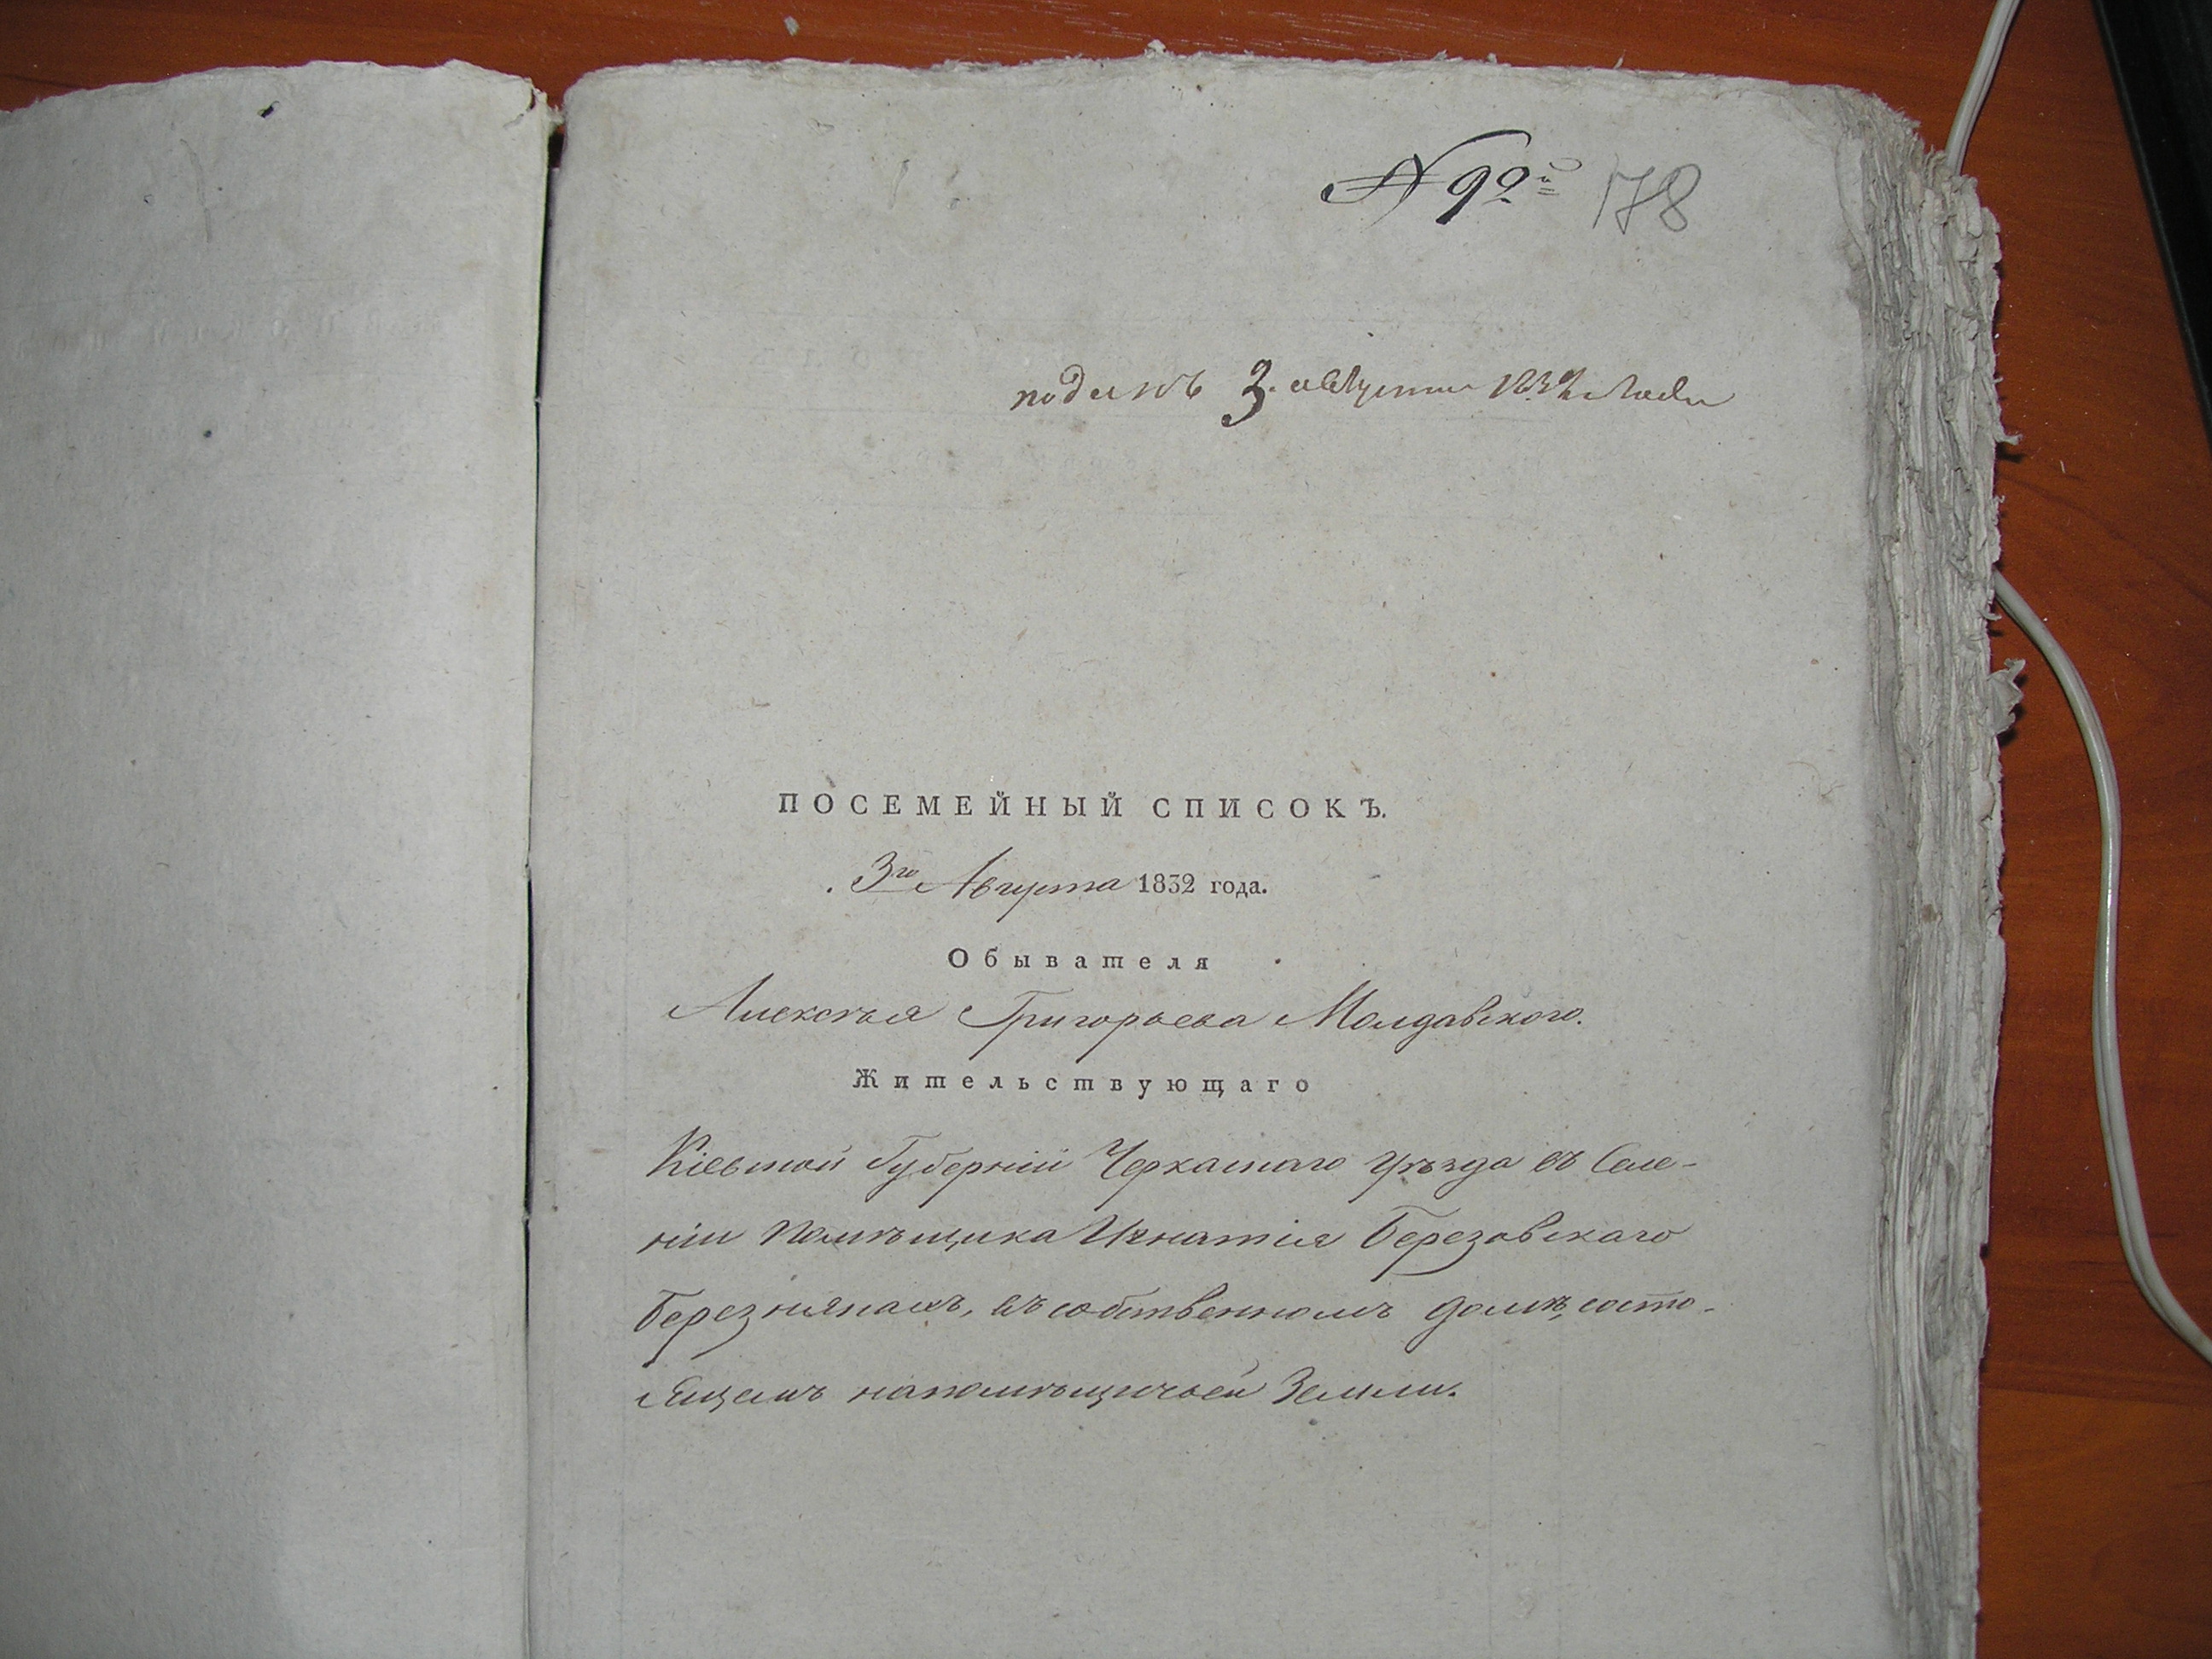 № 90й 178
поданъ 3. августа 1832 года
ПОСЕМЕЙНЫЙ СПИСОКЪ.
3го Августа 1832 года.
Обывателя
Алексѣя Григорьева Молдавского.
Жительствующаго
Кіевской Губерніи Черкаскаго Уѣзда въ Селе-
ніи Помѣщика Игнатія Березовскаго
Березнякахъ, въ собственномъ домѣ, состо-
ящемъ на помѣщичьей Земли.